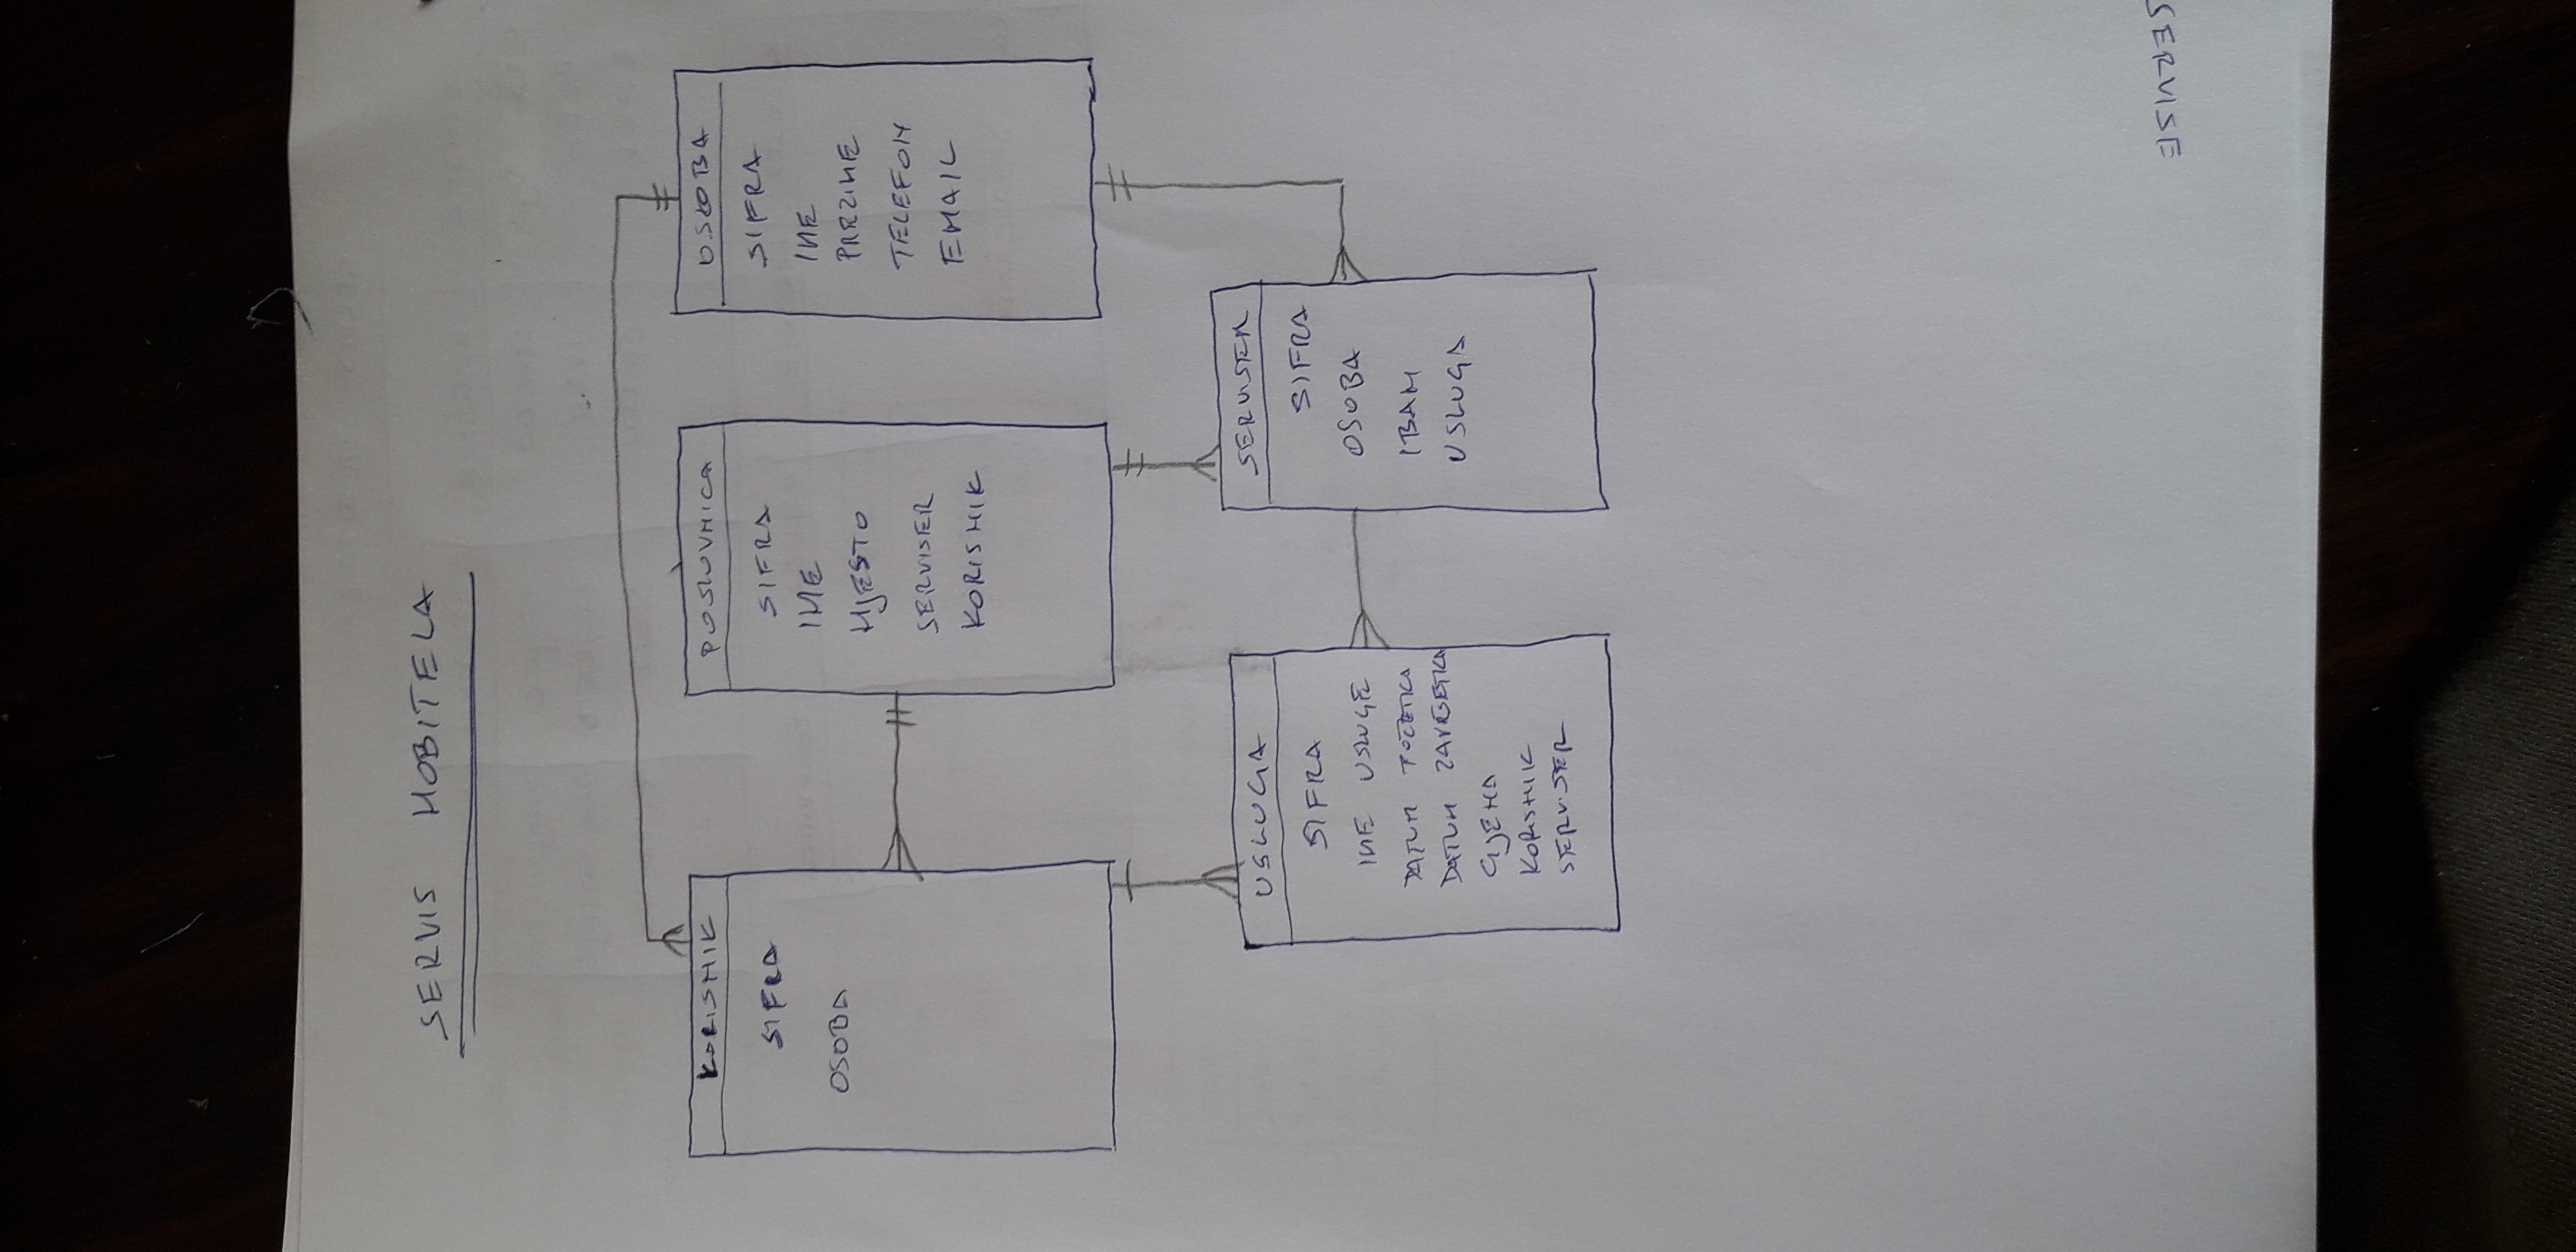 SERVIS MOBITELA
KORISNIK
SIFRA
OSOBA
POSLOVNICA
SIFRA
IME
MJESTO
SERVISER
KORISNIK
OSOBA
SIFRA
IME
PREZIME
TELEFON
EMAIL
USLUGA
SIFRA
IME USLUGE
DATUM POČETKA
DATUM ZAVRSETKA
CIJENA
KORISNIK
SERVISER
SERVISER
SIFRA
OSOBA
IBAN
USLUGA
SERVISE